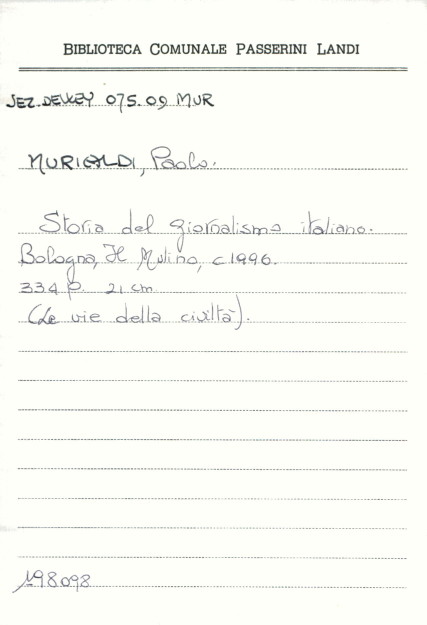 BIBLIOTECA COMUNALE PASSERINI LANDI
SEZ. DEWEY 075.09 MUR
MURIALDI, Paolo.
Storia del giornalismo italiano.
Bologna, Il Mulino, c1996.
334 p. 21 cm
(Le vie della civiltà).
198098